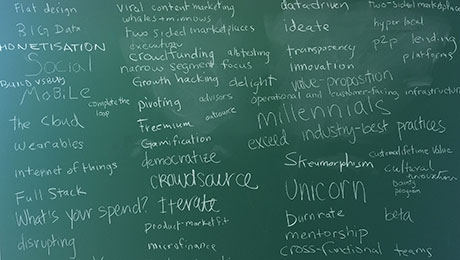 Flat design
BIG Data
MONETISATION
Social
BUILD VS BUY
MOBILE
complete the loop
the Cloud
Wearables
internet of things
Full Stack
What's your spend?
disrupting
Viral content marketing
whales + minnows
Two sided marketplaces
executive
crowdfunding
ab testing
narrow segment focus
Growth hacking
delight
pivoting
advisors
outsource
Freemium
Gamification
democratize
crowdsource
Iterate
product-market fit
microfinance
data driven
ideate
transparency
innovation
value-proposition
operational and customer-facing infrastructure
millennials
exceed industry-best practices
Skeumorphism
UNICORN
Burnrate
beta
mentorship
cross-functional teams
Two-sided marketplace
hyper local
p2p lending
platforms
customer lifetime value
cultural
innovation
program